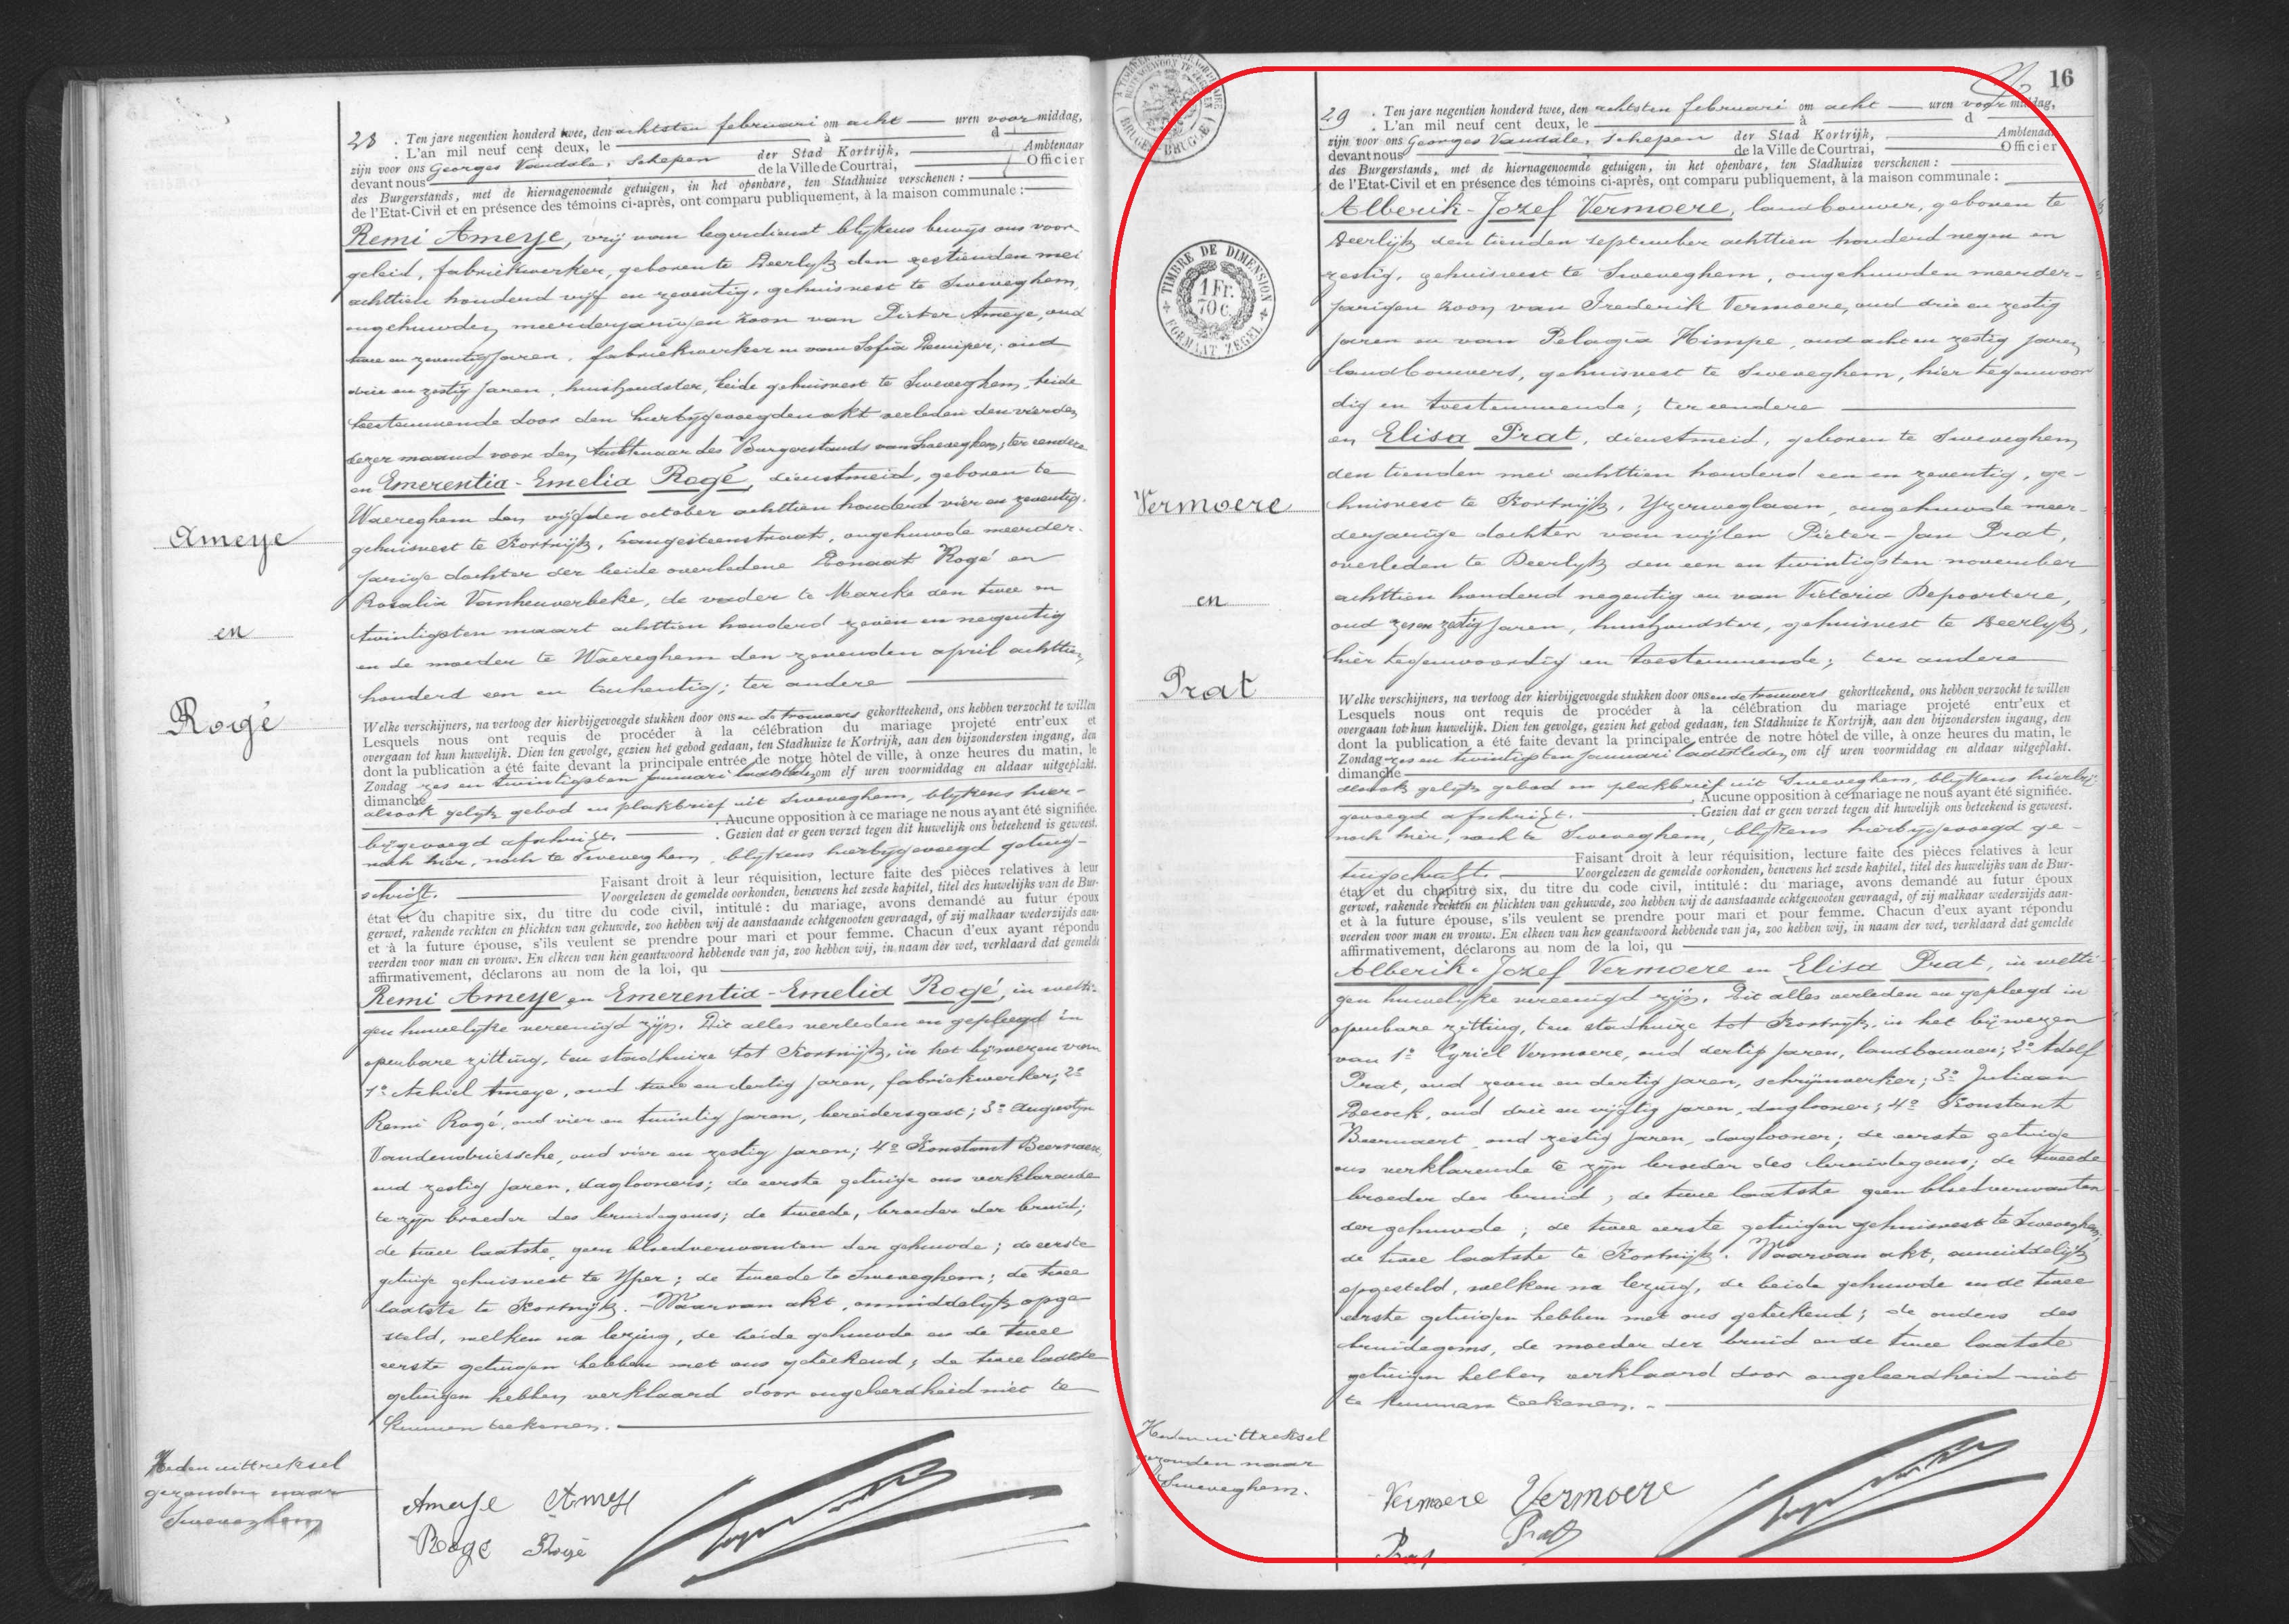 28 . Ten jare negentien honderd twee, den achtsten februari om acht uren voor middag,
. L'an mil neuf cent deux, le à d
zijn voor ons Georges Vandale, schepen der Stad Kortrijk, Ambtenaar
devant nous de la Ville de Courtrai, Officier
des Burgerstands, met de hiernagenoemde getuigen, in het openbare, ten Stadhuize verschenen :
de l'Etat-Civil et en présence des témoins ci-après, ont comparu publiquement, à la maison communale :
Remi Ameye, vrij van legerdienst blijkens bewijs ons voor-
geleid, fabriekwerker, geboren te Deerlijk den zestienden mei
achttien honderd vijf en zeventig, gehuisvest te Sweveghem,
ongehuwden meerderjarigen zoon van Pieter Ameye, oud
twee en zeventig jaren, fabriekwerker en van Sofia oud
drie en zestig jaren, huishoudster, beide gehuisvest te Sweveghem, beide
toestemmende door den hierbijgevoegden akt verleden den vierden
dezer maand voor den Ambtenaar des Burgerstands van Sweveghem; ter eendere
en Emerentia-Emelia Rogé, dienstmeid, geboren te
Waereghem den vijfden october achttien honderd vier en zeventig,
gehuisvest te Kortrijk, langesteenstraat, ongehuwde meerder-
jarige dochter der beide overledene Donaat Rogé en
Rosalia Vanheuverbeke, de vader te Marcke den twee en
twintigsten maart achttien honderd zeven en negentig
en de moeder te Waereghem den zevenden april achttien
honderd een en tachentig; ter andere
Ameye
en
Rogé
Welke verschijners, na vertoog der hierbijgevoegde stukken door ons en de trouwers gekortteekend, ons hebben verzocht te willen
Lesquels nous ont requis de procéder à la célébration du mariage projeté entr'eux et
overgaan tot hun huwelijk. Dien ten gevolge, gezien het gebod gedaan, ten Stadhuize te Kortrijk, aan den bijzondersten ingang, den
dont la publication a été faite devant la principale entrée de notre hôtel de ville, à onze heures du matin, le
Zondag zes en twintigsten januari laatstleden om elf uren voormiddag en aldaar uitgeplakt.
dimanche
alsook gelijk gebod en plakbrief uit Sweveghem, blijkens hier-
. Aucune opposition à ce mariage ne nous ayant été signifiée.
bijgevoegd afschrift. . Gezien dat er geen verzet tegen dit huwelijk ons beteekend is geweest.
noch hier, noch te Sweveghem, blijkens hierbijgevoegd getuig-
Faisant droit à leur réquisition, lecture faite des pièces relatives à leur
schrift. Voorgelezen de gemelde oorkonden, benevens het zesde kapitel, titel des huwelijks van de Bur-
état et du chapitre six, du titre du code civil, intitulé : du mariage, avons demandé au futur époux
gerwet, rakende rechten en plichten van gehuwde, zoo hebben wij de aanstaande echtgenooten gevraagd, of zij malkaar wederzijds aan-
et à la future épouse, s'ils veulent se prendre pour mari et pour femme. Chacun d'eux ayant répondu
veerden voor man en vrouw. En elkeen van hen geantwoord hebbende van ja, zoo hebben wij, in naam der wet, verklaard dat gemelde
affirmativement, déclarons au nom de la loi, qu
Remi Ameye en Emerentia-Emelia Rogé, in wetti-
gen huwelijke vereenigd zijn. Dit alles verleden en gepleegd in
openbare zitting, ten stadhuize tot Kortrijk, in het bijwezen van
1º Achiel Ameye, oud twee en dertig jaren, fabriekwerker; 2º
Remi Rogé, oud vier en twintig jaren, bereidersgast; 3º Augustijn
Vandendriessche, oud vier en zestig jaren; 4º Konstant Beernaert,
oud zestig jaren, daglooners; de eerste getuige ons verklarende
te zijn broeder des bruidegoms; de tweede, broeder der bruid;
de twee laatste, geen bloedverwanten der gehuwde; de eerste
getuige gehuisvest te Yper; de tweede te Sweveghem; de twee
laatste te Kortrijk. - Waarvan akt, onmiddelijk opge-
steld, welken na lezing, de beide gehuwde en de twee
eerste getuigen hebben met ons geteekend; de twee laatste
getuigen hebben verklaard door ongeleerdheid niet te
kunnen teekenen.
Heden uittreksel
gezonden naar
Sweveghem
Ameye Ameye
Rogé Rogé
16
29 . Ten jare negentien honderd twee, den achtsten februari om acht uren voor middag,
. L'an mil neuf cent deux, le à d
zijn voor ons Georges Vandale, schepen der Stad Kortrijk, Ambtenaar
devant nous de la Ville de Courtrai, Officier
des Burgerstands, met de hiernagenoemde getuigen, in het openbare, ten Stadhuize verschenen :
de l'Etat-Civil et en présence des témoins ci-après, ont comparu publiquement, à la maison communale :
TIMBRE DE DIMENSION
1 Fr.
70 C.
FORMAAT ZEGEL
Alberik-Jozef Vermoere, landbouwer, geboren te
Deerlijk den tienden september achttien honderd negen en
zestig, gehuisvest te Sweveghem, ongehuwden meerder-
jarigen zoon van Frederik Vermoere, oud drie en zestig
jaren en van Pelagia Himpe, oud acht en zestig jaren,
landbouwers, gehuisvest te Sweveghem, hier tegenwoor
dig en toestemmende; ter eendere
en Elisa Prat, dienstmeid, geboren te Sweveghem
den tienden mei achttien honderd een en zeventig, ge-
huisvest te Kortrijk, Yzerweglaan, ongehuwde meer-
derjarige dochter van wijlen Pieter-Jan Prat,
overleden te Deerlijk den een en twintigsten november
achttien honderd negentig en van Victoria Depoortere,
oud zes en zestig jaren, huishoudster, gehuisvest te Deerlijk,
hier tegenwoordig en toestemmende; ter andere
Vermoere
en
Prat
Welke verschijners, na vertoog der hierbijgevoegde stukken door ons en de trouwers gekortteekend, ons hebben verzocht te willen
Lesquels nous ont requis de procéder à la célébration du mariage projeté entr'eux et
overgaan tot hun huwelijk. Dien ten gevolge, gezien het gebod gedaan, ten Stadhuize te Kortrijk, aan den bijzondersten ingang, den
dont la publication a été faite devant la principale entrée de notre hôtel de ville, à onze heures du matin, le
Zondag zes en twintigsten januari laatstleden om elf uren voormiddag en aldaar uitgeplakt.
dimanche
alsook gelijk gebod en plakbrief uit Sweveghem, blijkens hierbij-
. Aucune opposition à ce mariage ne nous ayant été signifiée.
gevoegd afschrift. . Gezien dat er geen verzet tegen dit huwelijk ons beteekend is geweest.
noch hier, noch te Sweveghem, blijkens hierbijgevoegd ge-
Faisant droit à leur réquisition, lecture faite des pièces relatives à leur
tuigschrift. Voorgelezen de gemelde oorkonden, benevens het zesde kapitel, titel des huwelijks van de Bur-
état et du chapitre six, du titre du code civil, intitulé : du mariage, avons demandé au futur époux
gerwet, rakende rechten en plichten van gehuwde, zoo hebben wij de aanstaande echtgenooten gevraagd, of zij malkaar wederzijds aan-
et à la future épouse, s'ils veulent se prendre pour mari et pour femme. Chacun d'eux ayant répondu
veerden voor man en vrouw. En elkeen van hen geantwoord hebbende van ja, zoo hebben wij, in naam der wet, verklaard dat gemelde
affirmativement, déclarons au nom de la loi, qu
Alberik-Jozef Vermoere en Elisa Prat, in wetti-
gen huwelijke vereenigd zijn. Dit alles verleden en gepleegd in
openbare zitting, ten stadhuize tot Kortrijk, in het bijwezen
van 1º Cyriel Vermoere, oud dertig jaren, landbouwer; 2º Adolf
Prat, oud zeven en dertig jaren, schrijnwerker; 3º Juliaan
Decock, oud drie en vijftig jaren, daglooner; 4º Konstant
Beernaert, oud zestig jaren, daglooner; de eerste getuige
ons verklarende te zijn broeder des bruidegoms; de tweede
broeder der bruid; de twee laatste geen bloedverwanten
der gehuwde; de twee eerste getuigen gehuisvest te Sweveghem,
de twee laatste te Kortrijk. Waarvan akt, onmiddelijk
opgesteld, welken na lezing, de beide gehuwde en de twee
eerste getuigen hebben met ons geteekend; de ouders des
bruidegoms, de moeder der bruid en de twee laatste
getuigen hebben verklaard door ongeleerdheid niet
te kunnen teekenen. -
Heden uittreksel
gezonden naar
Sweveghem.
Vermoere Vermoere
Prat Prat